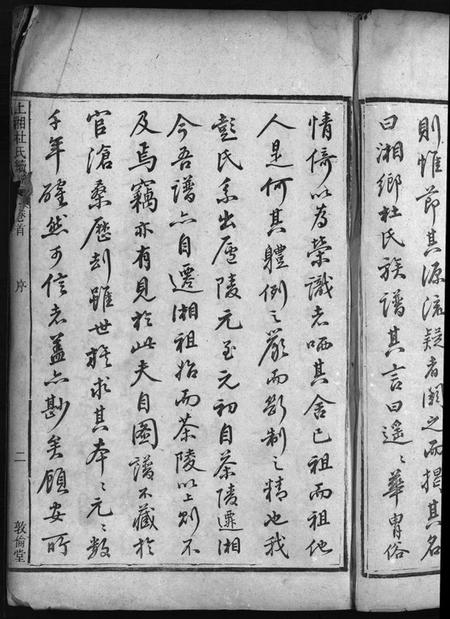 則惟節其源流疑者闕之而揭其名
曰湘鄉杜氏族譜其言曰遙〻華胄俗
情倚以為榮識者哂其舍己祖而祖他
人是何其體例之嚴而斷制之精也我
彭氏系出廬陵元至元初自茶陵遷湘
今吾譜亦自遷湘祖始而茶陵以上則不
及焉竊亦有見於此夫自圖譜不藏於
官滄桑歷刧雖世族求其本〻元〻數
千年確然可信者蓋亦尠矣顧安所
上湘杜氏 卷首
序
二
敦倫堂